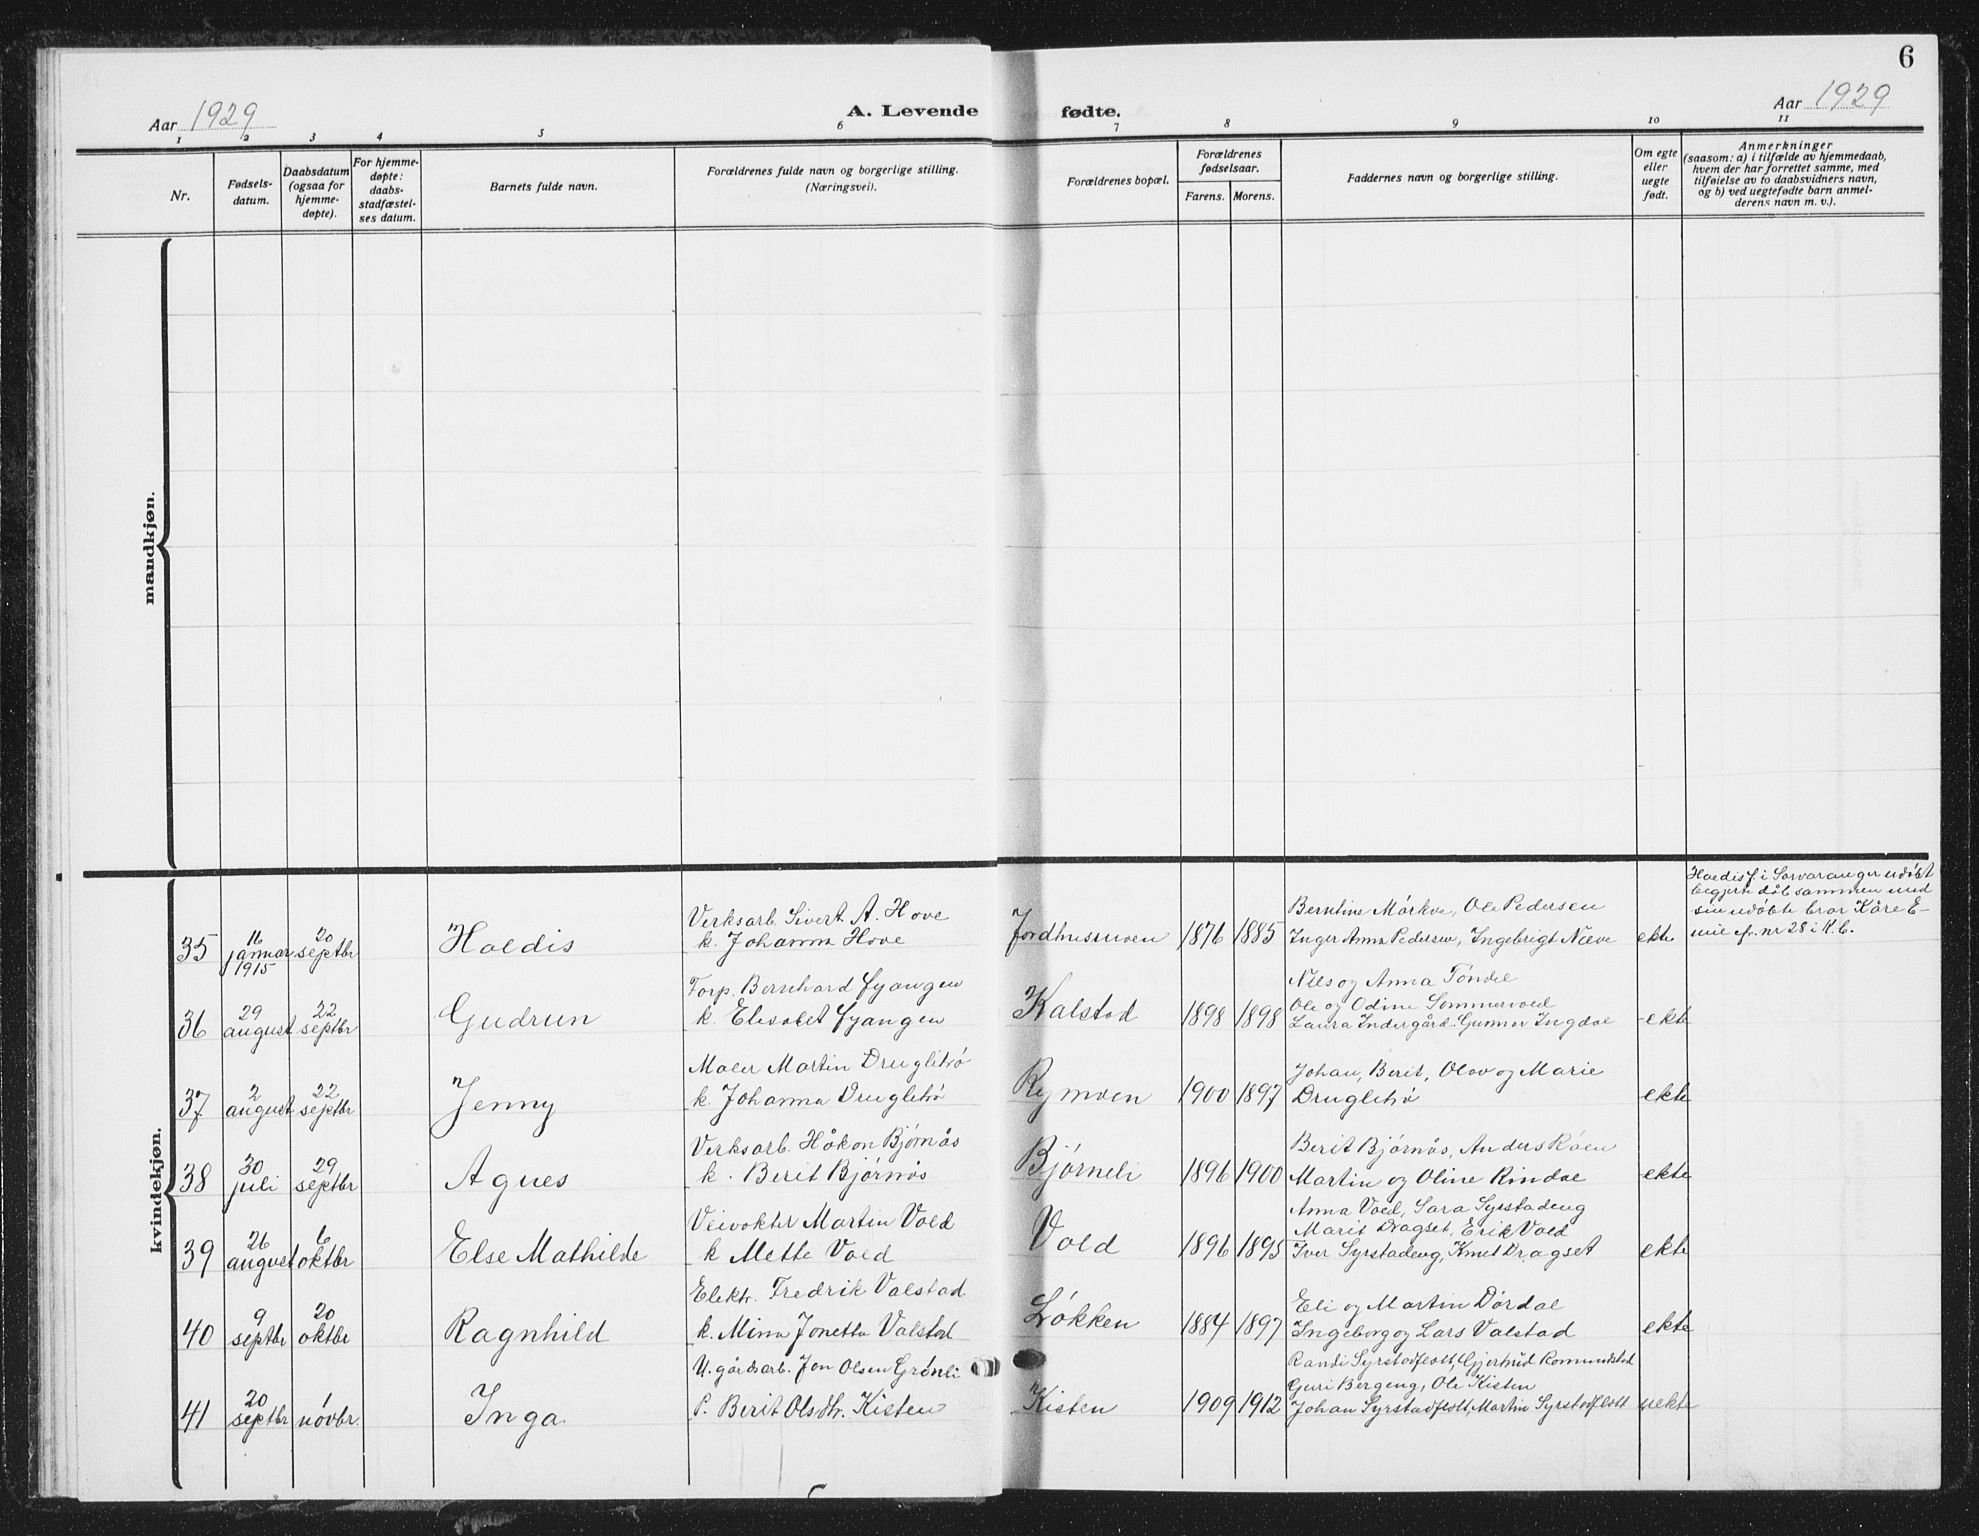 6
Aar 1929
A. Levende fødte.
Aar 1929
1 2 3 4 5 6 7 8 9 10 11
Nr.
Fødsels-
datum.
Daabsdatum
(ogsaa for
hjemme-
døpte).
For hjemme-
døpte:
daabs-
stadfæstel-
ses datum.
Barnets fulde navn.
Forældrenes fulde navn og borgerlige stilling.
(Næringsvei).
Forældrenes bopæl.
Forældrenes
fødselsaar.
Farens. Morens.
Faddernes navn og borgerlige stilling.
Om egte
eller
uegte
født.
Anmerkninger
(saasom: a) i tilfælde av hjemmedaab,
hvem der har forrettet samme, med
tilføielse av to daabsvidners navn,
og b) ved uegtefødte barn anmel-
derens navn m. v.).
mandkjøn.
kvindekjøn.
35
16
januar
1915
20
septbr
Haldis
Verksarb. Sivert A. Hove
k. Johanna Hove
1876 1885
Berntine Mörkve, Ole Pedersen
Inger Anna Pedersen, Ingebrigt Næve
ekte
Haldis f. i Sørvaranger udöbt
begjerte dåb sammen med
sin udöbte bror Kåre E-
mil cfr. nr 28 i K.b.
36
29
august
22
septbr
Gudrun
Forp. Bernhard Gjangen
k. Elisabet Gjangen
Kalstad
1898 1898
Nils og Anna Töndel
Ole og Odine Sommervold
Laura Indergård. Gunnar Ingdal
ekte
37
2
august
22
septbr
Jenny
Maler Martin Drugletrö
k. Johanna Drugletrö
Rymoen
1900 1897
Johan, Berit, Olav og Marie
Drugletrö
ekte
38
30
juli
29
septbr
Agnes
Verksarb. Håkon Bjørnås
k. Berit Björnås
Björneli
1896 1900
Berit Björnås, Anders Röen
Martin og Oline Rindal
ekte
39
26
august
6
oktbr
Else Mathilde
Veivokter Martin Vold
k Mette Vold
Vold
1896 1895
Anna Vold, Sara Syrstadeng
Marit Dragset, Erik Vold
Iver Syrstadeng, Knut Dragset
ekte
40
9
septbr
20
oktbr
Ragnhild
Elektr. Fredrik Valstad
k. Mina Jonetta Valstad
Løkken
1884 1897
Eli og Martin Dørdal
Ingeborg og Lars Valstad
ekte
41
20
septbr
nóvbr.
Inga
U. gårdsarb. Jon Olsen Grønli
P. Berit Olsdtr. Kisten
Kisten
1909 1912
Randi Syrstadflott, Gjertrud Romundstad
Guri Bergeng, Ole Kisten
Johan Syrstadflott, Martin Syrstadflott
uekte